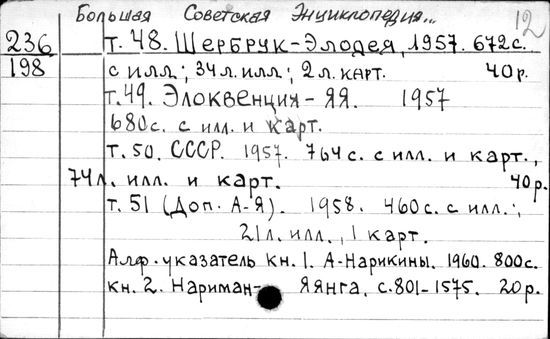 Большая Советская Энциклопедия... 12
236 т. 48. Шербрук-Элодея, 1957. 672с.
198 с илл.; 34л.илл.; 2л.карт. 40р.
т.49. Элоквенция - ЯЯ. 1957
680с. с илл. и карт.
т.50. СССР. 1957. 764с. с илл. и карт.,
74л. илл. и карт. 40р.
т.51 (Доп. А-Я). 1958. 460с. с илл.;
21л. илл., 1 карт.
Алф. указатель кн. 1. А-Нарикины. 1960. 800с.
кн. 2. Нариман- Яянга. с.801-1575. 20р.